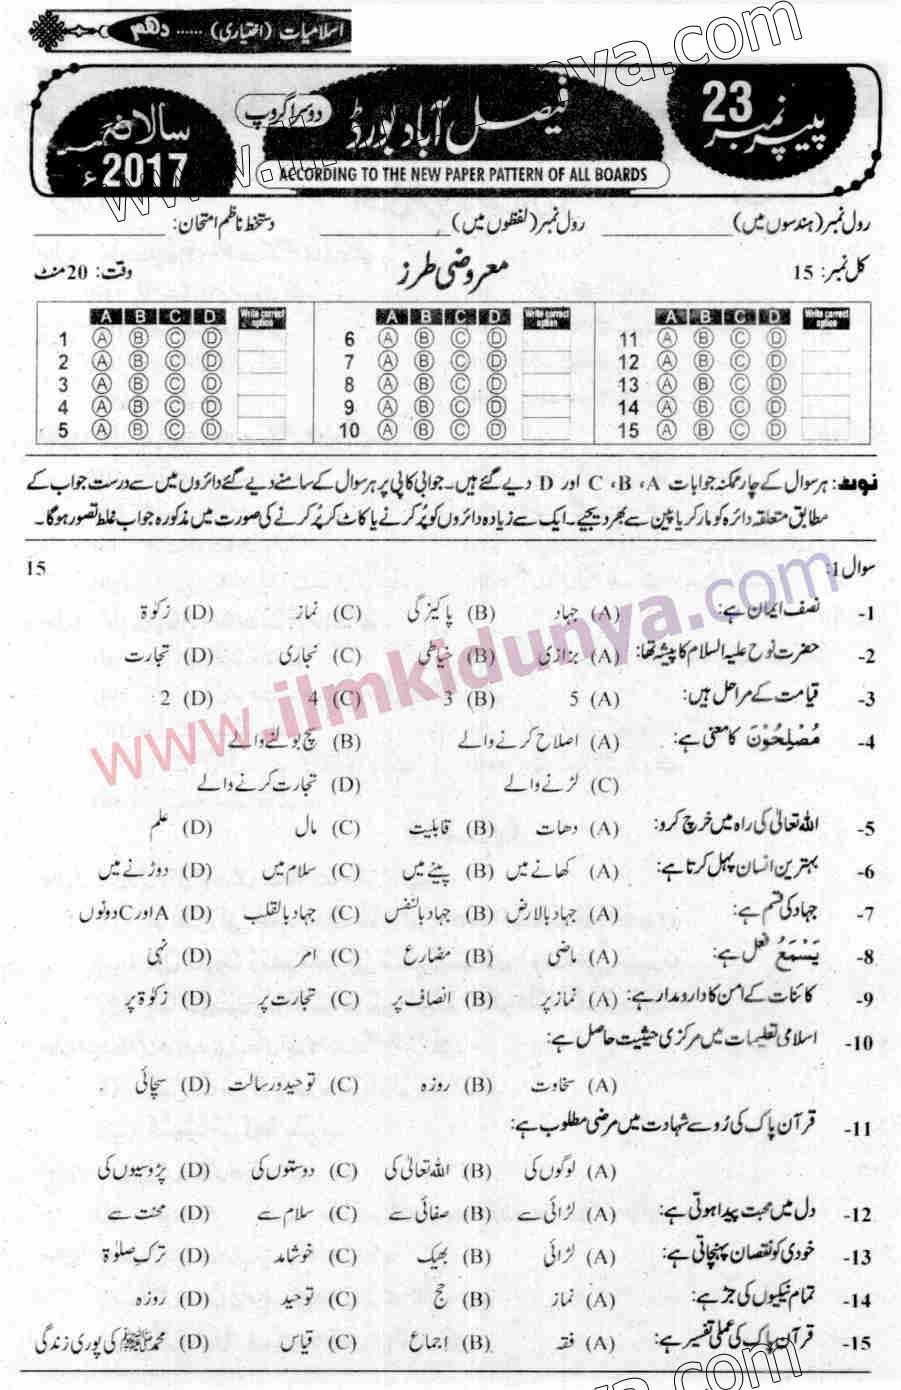 اسلامیات (اختیاری) ...... دہم
پیپر نمبر 23
فیصل آباد بورڈ
دوسرا گروپ
سالانہ 2017ء
ACCORDING TO THE NEW PAPER PATTERN OF ALL BOARDS
رول نمبر (ہندسوں میں) رول نمبر (لفظوں میں) دستخط ناظم امتحان:
کل نمبر: 15 معروضی طرز وقت: 20 منٹ
A B C D Write correct option A B C D Write correct option A B C D Write correct option
1 A B C D 6 A B C D 11 A B C D
2 A B C D 7 A B C D 12 A B C D
3 A B C D 8 A B C D 13 A B C D
4 A B C D 9 A B C D 14 A B C D
5 A B C D 10 A B C D 15 A B C D
نوٹ: ہر سوال کے چار ممکنہ جوابات A، B، C اور D دیے گئے ہیں۔ جوابی کاپی پر ہر سوال کے سامنے دیے گئے دائروں میں سے درست جواب کے
مطابق متعلقہ دائرہ کو مارکر یا پین سے بھر دیجیے۔ ایک سے زیادہ دائروں کو پُر کرنے یا کاٹ کر پُر کرنے کی صورت میں مذکورہ جواب غلط تصور ہوگا۔
سوال 1: 15
1- نصف ایمان ہے: (A) جہاد (B) پاکیزگی (C) نماز (D) زکوٰۃ
2- حضرت نوح علیہ السلام کا پیشہ تھا: (A) بزازی (B) خیاطی (C) نجاری (D) تجارت
3- قیامت کے مراحل ہیں: (A) 5 (B) 3 (C) 4 (D) 2
4- مُصْلِحُوْنَ کا معنی ہے: (A) اصلاح کرنے والے (B) سچ بولنے والے
(C) لڑنے والے (D) تجارت کرنے والے
5- اللہ تعالیٰ کی راہ میں خرچ کرو: (A) دھات (B) قابلیت (C) مال (D) علم
6- بہترین انسان پہل کرتا ہے: (A) کھانے میں (B) پینے میں (C) سلام میں (D) دوڑنے میں
7- جہاد کی قسم ہے: (A) جہاد بالارض (B) جہاد بالنفس (C) جہاد بالقلب (D) A اور C دونوں
8- یَسْمَعُ فعل ہے: (A) ماضی (B) مضارع (C) امر (D) نہی
9- کائنات کے امن کا دارومدار ہے: (A) نماز پر (B) انصاف پر (C) تجارت پر (D) زکوٰۃ پر
10- اسلامی تعلیمات میں مرکزی حیثیت حاصل ہے:
(A) سخاوت (B) روزہ (C) توحید و رسالت (D) سچائی
11- قرآن پاک کی رُو سے شہادت میں مرضی مطلوب ہے:
(A) لوگوں کی (B) اللہ تعالیٰ کی (C) دوستوں کی (D) پڑوسیوں کی
12- دل میں محبت پیدا ہوتی ہے: (A) لڑائی سے (B) صفائی سے (C) سلام سے (D) محنت سے
13- خودی کو نقصان پہنچاتی ہے: (A) لڑائی (B) بھیک (C) خوشامد (D) ترکِ صلوٰۃ
14- تمام نیکیوں کی جڑ ہے: (A) نماز (B) حج (C) توحید (D) روزہ
15- قرآن پاک کی عملی تفسیر ہے: (A) فقہ (B) اجماع (C) قیاس (D) محمد ﷺ کی پوری زندگی
www.ilmkidunya.com